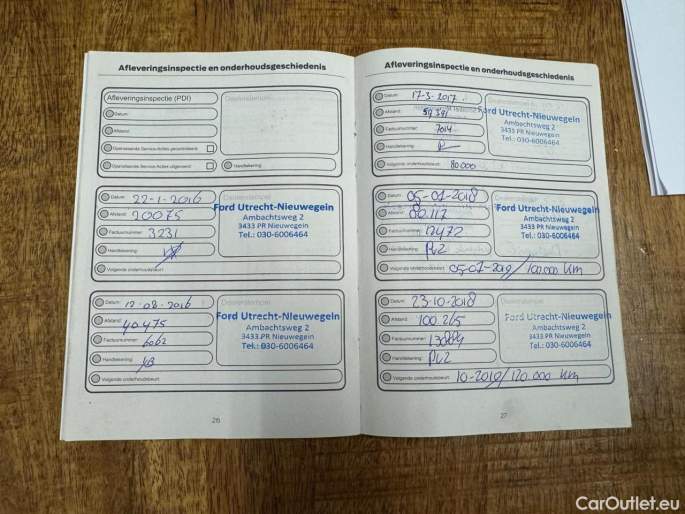 Afleveringsinspectie en onderhoudsgeschiedenis
Afleveringsinspectie (PDI)
Datum:
Afstand:
Openstaande Service-Acties gecontroleerd:
Openstaande Service-Acties uitgevoerd:
Handtekening:
Datum: 22-1-2016
Afstand: 20075
Factuurnummer: 3231
Handtekening:
Volgende onderhoudsbeurt:
Ford Utrecht-Nieuwegein
Ambachtsweg 2
3433 PR Nieuwegein
Tel.: 030-6006464
Datum: 12-08-2016
Afstand: 40475
Factuurnummer: 6062
Handtekening:
Volgende onderhoudsbeurt:
Dealerstempel
Ford Utrecht-Nieuwegein
Ambachtsweg 2
3433 PR Nieuwegein
Tel.: 030-6006464
26
Afleveringsinspectie en onderhoudsgeschiedenis
Datum: 17-3-2017
Afstand: 59391
Factuurnummer: 7014
Handtekening:
Volgende onderhoudsbeurt: 80.000
Ford Utrecht-Nieuwegein
Ambachtsweg 2
3433 PR Nieuwegein
Tel.: 030-6006464
Datum: 05-01-2018
Afstand: 80.117
Factuurnummer: 12472
Handtekening:
Volgende onderhoudsbeurt: 05-01-2019/100.000 km
Ford Utrecht-Nieuwegein
Ambachtsweg 2
3433 PR Nieuwegein
Tel.: 030-6006464
Datum: 23-10-2018
Afstand: 100.265
Factuurnummer:
Handtekening:
Volgende onderhoudsbeurt: 10-2019/120.000 km
Ford Utrecht-Nieuwegein
Ambachtsweg 2
3433 PR Nieuwegein
Tel.: 030-6006464
27
CarOutlet.eu